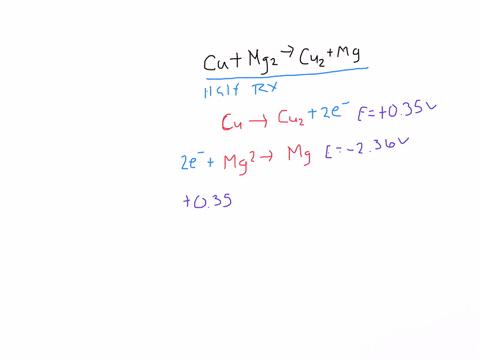 Cu + Mg2 → Cu2 + Mg
Half RX
Cu → Cu2 + 2e⁻ E=+0.35V
2e⁻ + Mg² → Mg E=-2.36V
+0.35